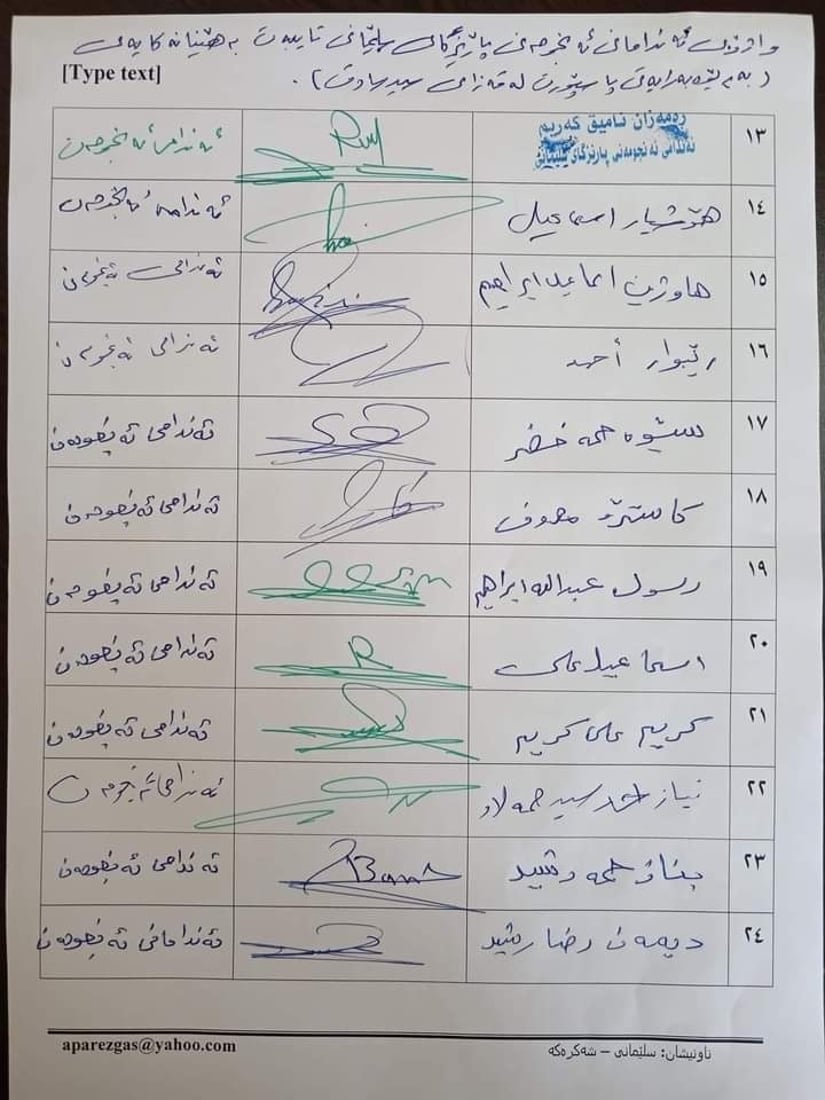 واژۆی ئەندامانی ئەنجومەنی پارێزگای سلێمانی تایبەت بە هێنانە کایەی
(بەڕێوەبەرایەتی پاسپۆرت لە قەزای سیدصادق).
[Type text]
١٣ ڕەمەزان نامیق کەریم ئەندامی ئەنجومەن
ئەندامی ئەنجومەنی پارێزگای سلێمانی
١٤ هۆشیار اسماعیل ئەندامی ئەنجومەن
١٥ هاوژین اسماعیل ابراهیم ئەندامی ئەنجومەن
١٦ رێبوار أحمد ئەندامی ئەنجومەن
١٧ حمە خضر ئەندامی ئەنجومەن
١٨ کاسترۆ معروف ئەندامی ئەنجومەن
١٩ رسول عبدالله ابراهیم ئەندامی ئەنجومەن
٢٠ اسماعیل علی ئەندامی ئەنجومەن
٢١ کریم علی کریم ئەندامی ئەنجومەن
٢٢ نیاز احمد سید حمە ئەندامی ئەنجومەن
٢٣ بناز حمە رشید Banaz ئەندامی ئەنجومەن
٢٤ دیمەن رضا رشید ئەندامانی ئەنجومەن
ناونیشان: سلێمانی – شەکرەکە
aparezgas@yahoo.com